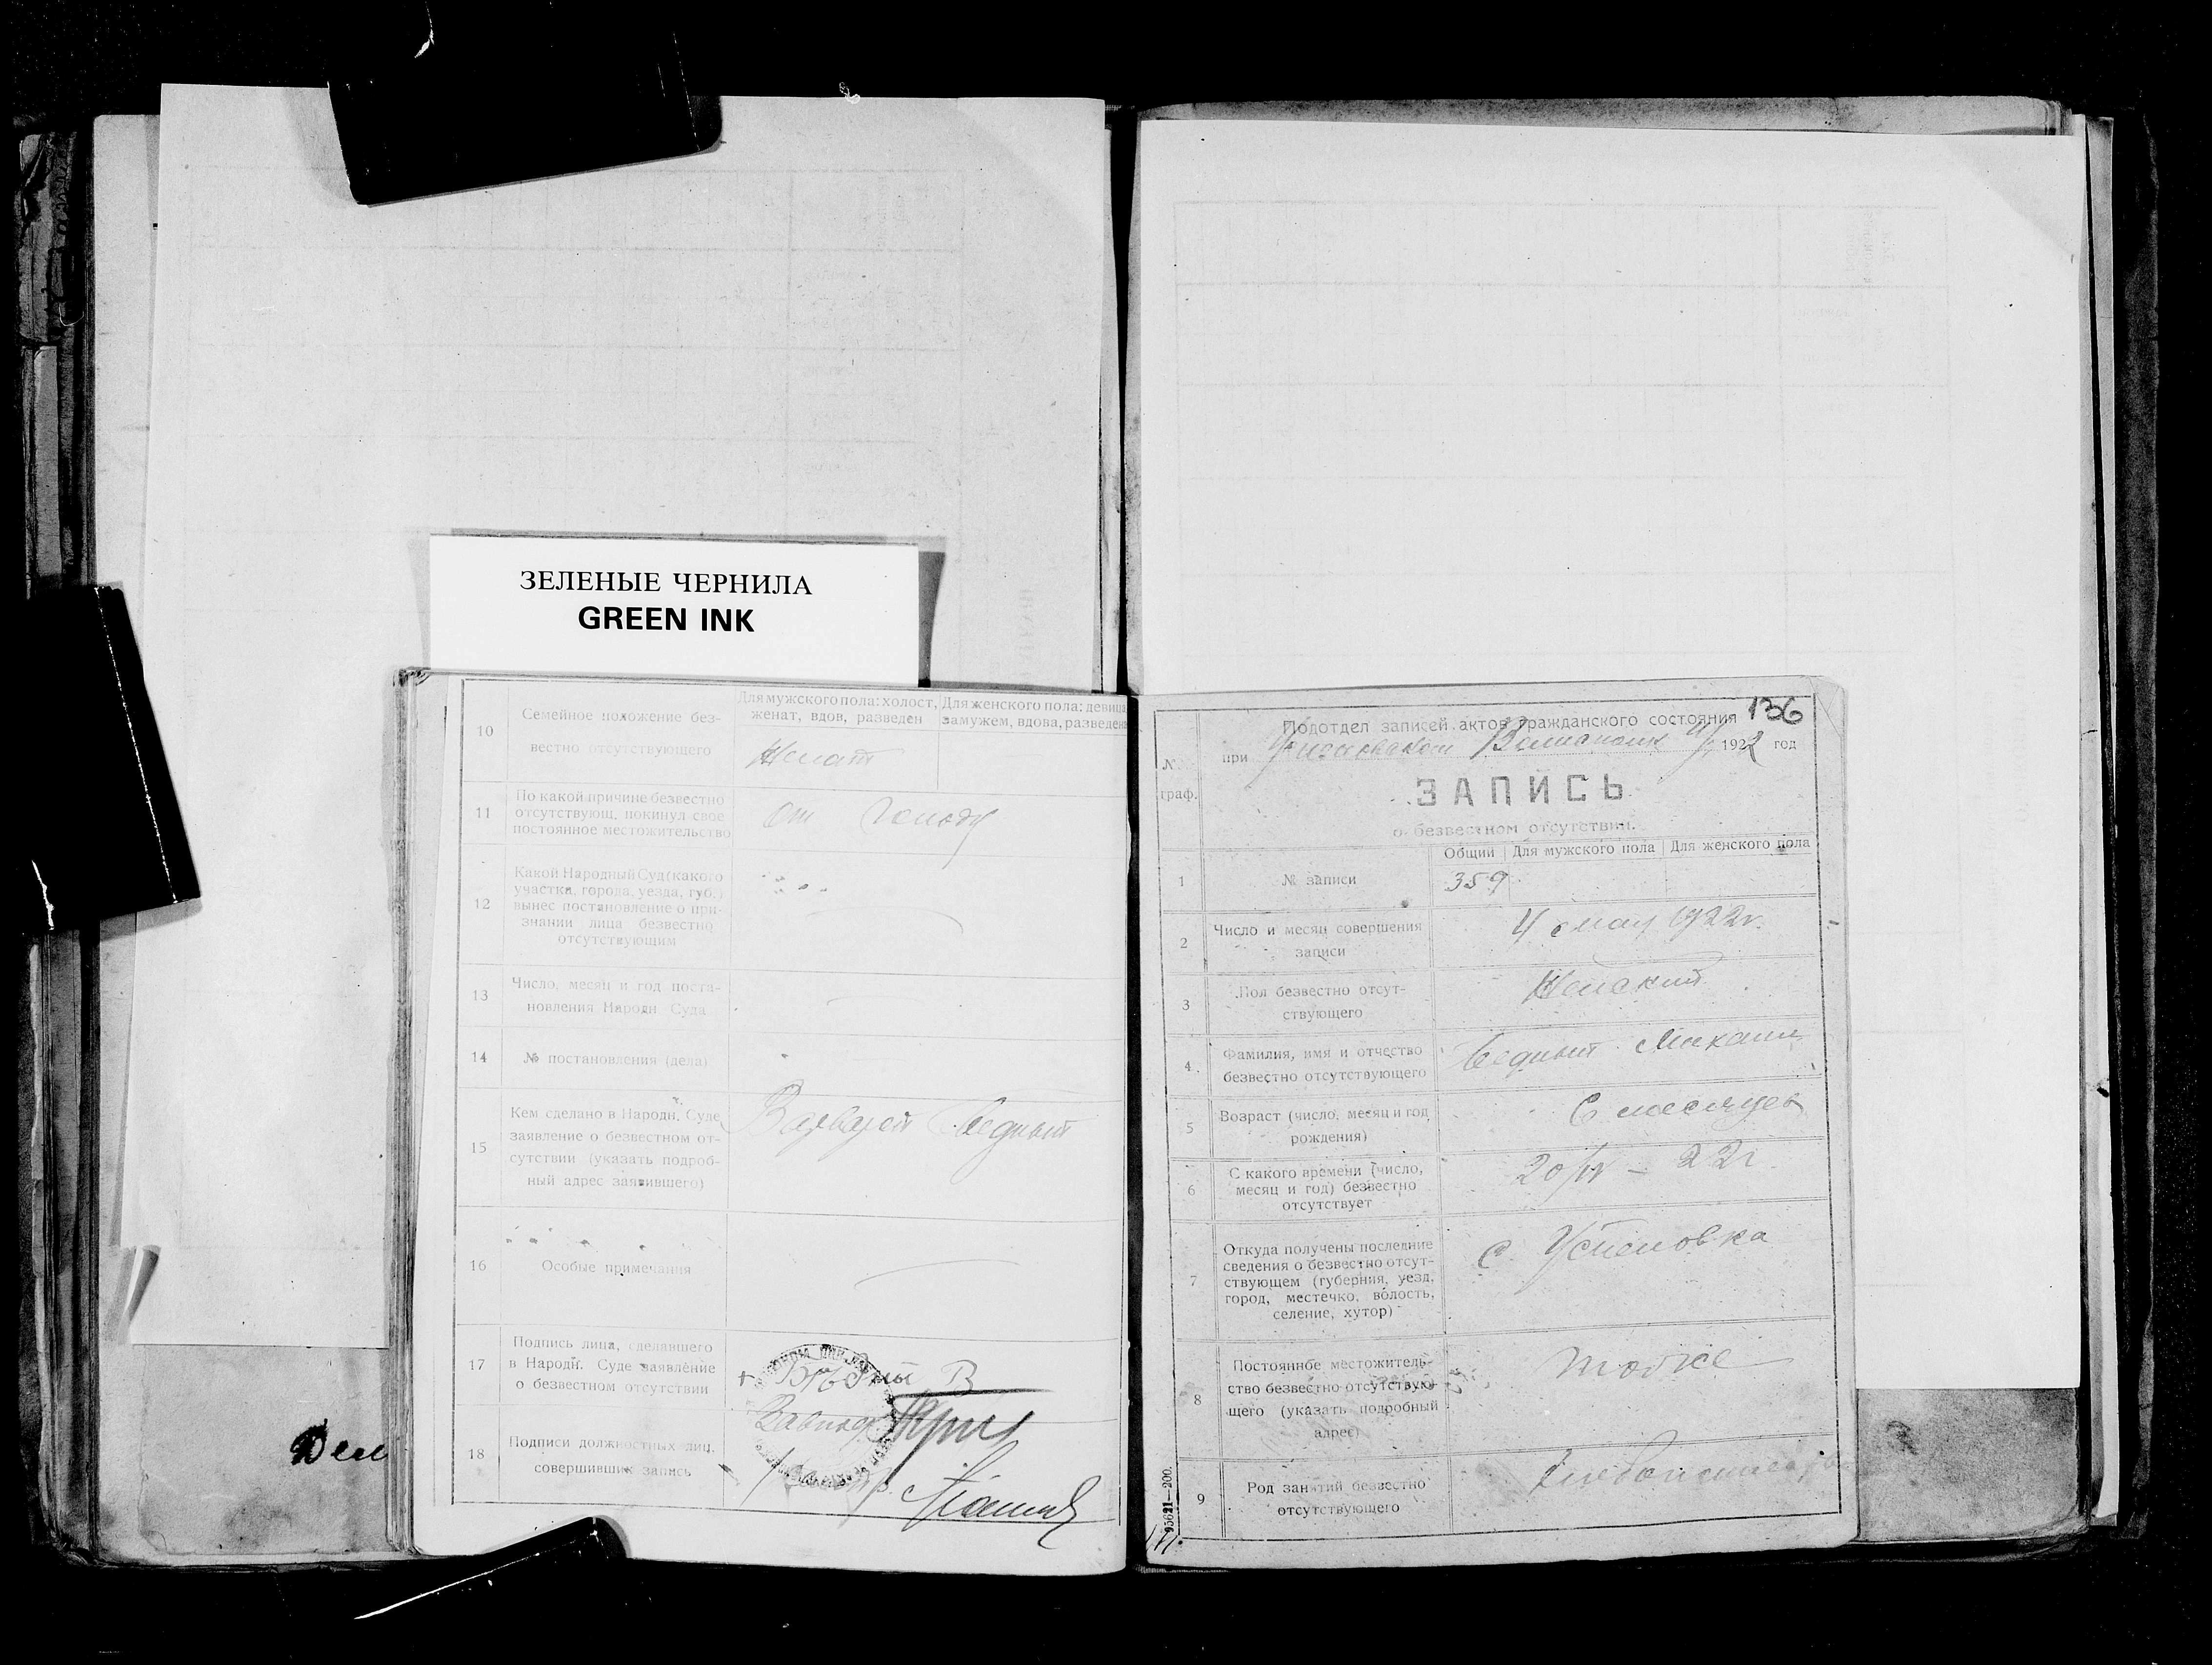 ЗЕЛЕНЫЕ ЧЕРНИЛА
GREEN INK
10
Семейное положение без-
вестно отсутствующего
Для мужского пола: холост,
женат, вдов, разведен
Для женского пола: девица
замужем, вдова, разведена
Женат
11
По какой причине безвестно
отсутствующ. покинул свое
постоянное местожительство
от голоду
12
Какой Народный Суд (какого
участка, города, уезда, губ.)
вынес постановление о при-
знании лица безвестно
отсутствующим
13
Число, месяц и год поста-
новления Народн. Суда
14
№ постановления (дела)
15
Кем сделано в Народн. Суде
заявление о безвестном от-
сутствии (указать подроб-
ный адрес заявившего)
16
Особые примечания
17
Подпись лица, сделавшего
в Народн. Суде заявление
о безвестном отсутствии
18
Подписи должностных лиц,
совершивших запись
136
Подотдел записей актов гражданского состояния
при 1922 год
№
граф.
ЗАПИСЬ
о безвестном отсутствии.
Общий Для мужского пола Для женского пола
1
№ записи
359
2
Число и месяц совершения
записи
4 мая 1922г.
3
Пол безвестно отсут-
ствующего
4
Фамилия, имя и отчество
безвестно отсутствующего
5
Возраст (число, месяц и год
рождения)
6 месяцев
6
С какого времени (число,
месяц и год) безвестно
отсутствует
20/IV – 22г.
7
Откуда получены последние
сведения о безвестно отсут-
ствующем (губерния, уезд,
город, местечко, волость,
селение, хутор)
с. Успеновка
8
Постоянное местожитель-
ство безвестно отсутствую-
щего (указать подробный
адрес)
тоже
9
Род занятий безвестно
отсутствующего
95621—200.